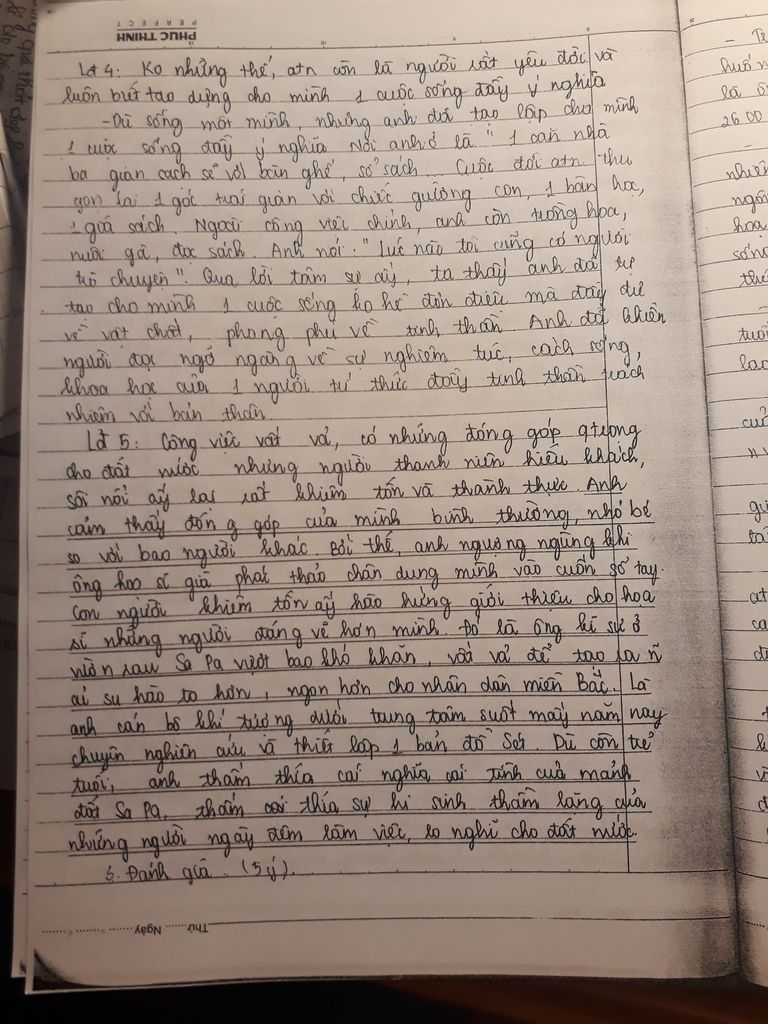 PHUC THINH
PERFECT
Lđ 4: Ko những thế, atn còn là người rất yêu đời và
luôn biết tạo dựng cho mình 1 cuộc sống đầy ý nghĩa
- Dù sống một mình, nhưng anh đã tạo lập cho mình
1 cuộc sống đầy ý nghĩa Nơi anh ở là " 1 căn nhà
ba gian sạch sẽ với bàn ghế, sổ sách. Cuộc đời atn thu
gọn lại 1 góc trái gian với chiếc giường con, 1 bàn học,
1 giá sách. Ngoài công việc chính, anh còn trồng hoa,
nuôi gà, đọc sách. Anh nói: " Lúc nào tôi cũng có người
trò chuyện". Qua lời tâm sự ấy, ta thấy anh đã tự
tạo cho mình 1 cuộc sống ko hề đơn điệu mà đầy đủ
về vật chất, phong phú về tinh thần. Anh đã khiến
người đọc ngỡ ngàng về sự nghiêm túc, cách sống,
khoa học của 1 người trí thức đầy tinh thần trách
nhiệm với bản thân.
Lđ 5: Công việc vất vả, có những đóng góp qtrọng
cho đất nước nhưng người thanh niên hiếu khách,
sôi nổi ấy lại rất khiêm tốn và thành thực. Anh
cảm thấy đóng góp của mình bình thường, nhỏ bé
so với bao người khác. Bởi thế, anh ngượng ngùng khi
ông họa sĩ già phác thảo chân dung mình vào cuốn sổ tay.
Con người khiêm tốn ấy hào hứng giới thiệu cho họa
sĩ những người đáng vẽ hơn mình. Đó là ông kĩ sư ở
vườn rau Sa Pa vượt bao khó khăn, vất vả để tạo ra n
củ su hào to hơn, ngon hơn cho nhân dân miền Bắc. Là
anh cán bộ khí tượng dưới trung tâm suốt mấy năm nay
chuyên nghiên cứu và thiết lập 1 bản đồ Sét. Dù còn trẻ
tuổi, anh thấm thía cái nghĩa cái tình của mảnh
đất Sa Pa, thấm cái thía sự hi sinh thầm lặng của
những người ngày đêm làm việc, lo nghĩ cho đất nước.
3. Đánh giá. (5 ý).
Thứ ...... Ngày ......